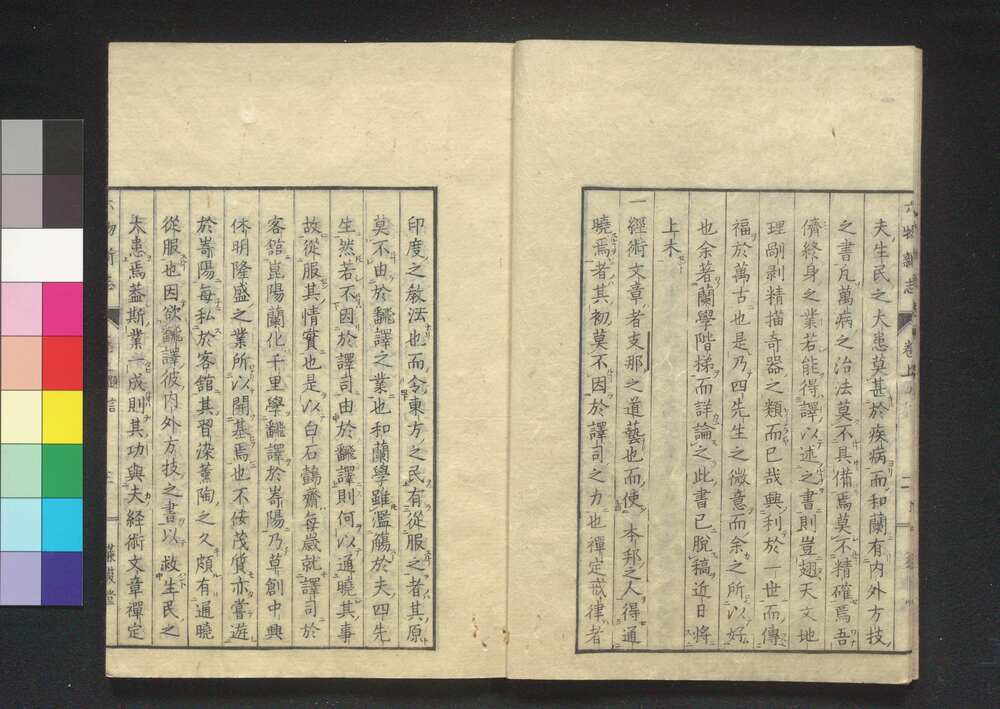 夫生民之大患莫甚於疾病而和蘭有内外方技
之書凡萬病之治法莫不具備焉莫不精確焉吾
儕終身之業若能得譯以述之書則豈翅天文地
理剮剥精描奇器之類而已哉興利於一世而傳
福於萬古也是乃四先生之微意而余之所以好
也余著蘭學階梯而詳論之此書已脱稿近日將
上木
一經術文章者支那之道藝也而使 本邦之人得通
曉焉者其初莫不因於譯司之力也禪定戒律者
印度之敎法也而令東方之民有從服之者其原
莫不由於飜譯之業也和蘭學雖濫觴於夫四先
生然若不因於譯司由於飜譯則何以通曉其事
故從服其情實也是以白石鷧齋每歲就譯司於
客舘崑陽蘭化千里學飜譯於嵜陽乃草創中興
休明隆盛之業所以開基焉也不佞茂質亦嘗遊
於嵜陽每私於客舘其習染薫陶之久頗有通曉
從服也因欲飜譯彼内外方技之書以救生民之
大患焉葢斯業一成則其功與夫経術文章禪定
六物新志